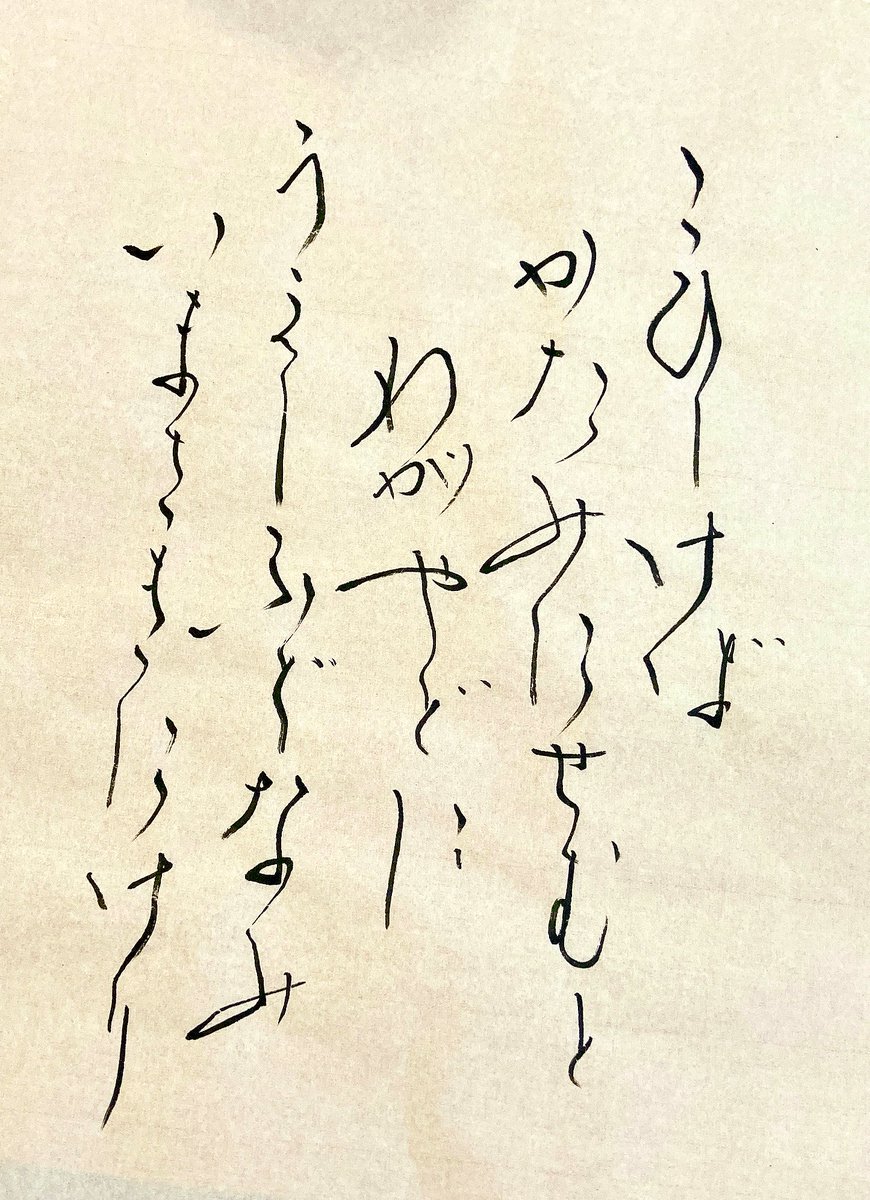 こひしけば
かたみにせむと
わがやどに
うえしふぢなみ
いまさきにけり